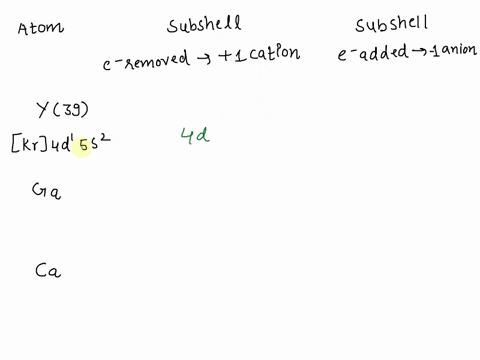 Atom Subshell Subshell
e-removed → +1 cation e-added → -1 anion
Y(39)
[Kr]4d¹ 5s² 4d
Ga
Ca